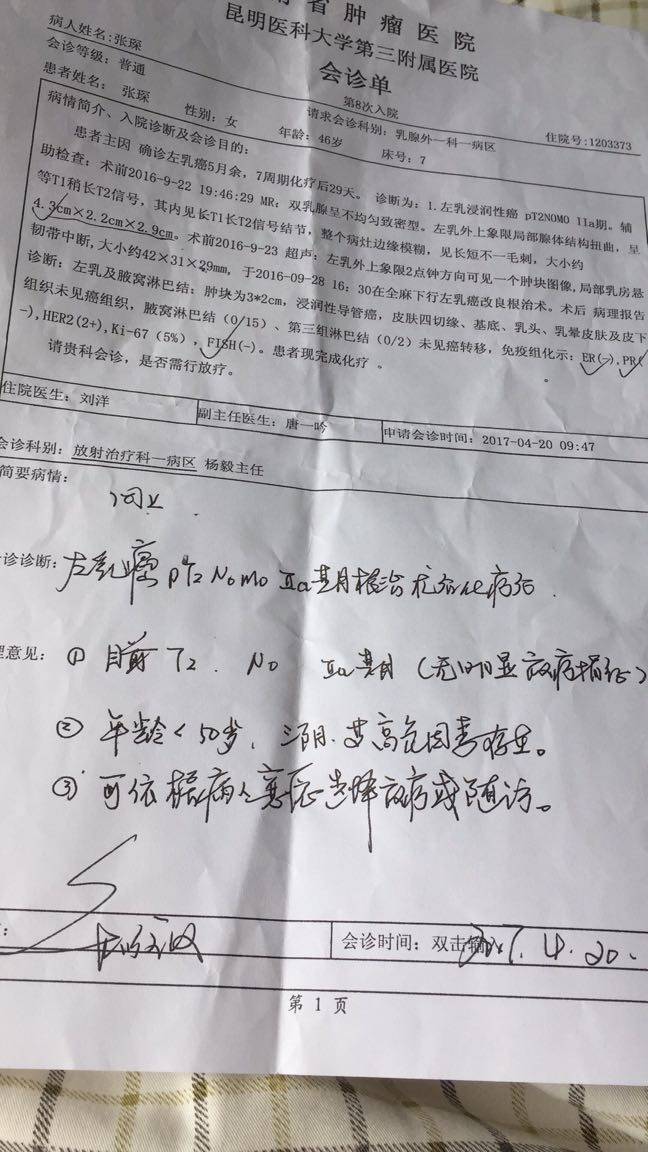 南省肿瘤医院
昆明医科大学第三附属医院
会诊单
第8次入院
病人姓名:张琛
会诊等级：普通
请求会诊科别：乳腺外一科一病区
住院号:1203373
患者姓名： 张琛 性别：女 年龄：46岁 床号：7
病情简介、入院诊断及会诊目的：
患者主因 确诊左乳癌5月余，7周期化疗后29天。 诊断为：1.左乳浸润性癌 pT2N0M0 IIa期。辅
助检查：术前2016-9-22 19:46:29 MR：双乳腺呈不均匀致密型。左乳外上象限局部腺体结构扭曲，呈
等T1稍长T2信号，其内见长T1长T2信号结节，整个病灶边缘模糊，见长短不一毛刺，大小约
4.3cm×2.2cm×2.9cm。术前2016-9-23 超声：左乳外上象限2点钟方向可见一个肿块图像,局部乳房悬
韧带中断,大小约42×31×29mm，于2016-09-28 16：30在全麻下行左乳癌改良根治术。术后 病理报告
诊断：左乳及腋窝淋巴结：肿块为3*2cm，浸润性导管癌，皮肤四切缘、基底、乳头、乳晕皮肤及皮下
组织未见癌组织，腋窝淋巴结（0/15）、第三组淋巴结（0/2）未见癌转移，免疫组化示：ER(-),PR(
-),HER2(2+),Ki-67（5%），FISH(-)。患者现完成化疗 。
请贵科会诊，是否需行放疗。
住院医生：刘洋 副主任医生：唐一吟 申请会诊时间：2017-04-20 09:47
会诊科别：放射治疗科一病区 杨毅主任
简要病情：
同上
诊诊断：左乳癌 pT2N0M0 IIa期根治术后化疗后.
理意见：① 目前 T2. N0 IIa期（无明显放疗指征）
② 年龄<50岁，三阴.等高危因素存在。
③ 可依据病人意愿选择放疗或随访。
会诊时间：双击输入 2017.4.20.
第 1 页